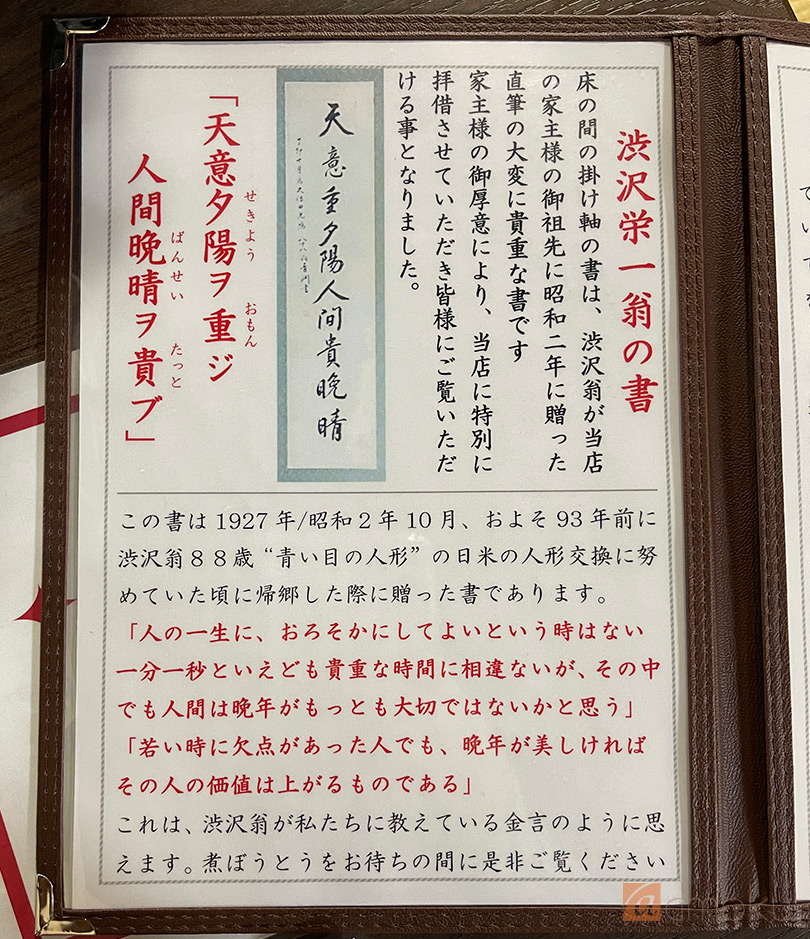 渋沢栄一翁の書
床の間の掛け軸の書は、渋沢翁が当店
の家主様の御祖先に昭和二年に贈った
直筆の大変に貴重な書です
家主様の御厚意により、当店に特別に
拝借させていただき皆様にご覧いただ
ける事となりました。
天意重夕陽人间貴晩晴
「天意夕陽ヲ重ジ
せきよう おもん
人間晩晴ヲ貴ブ」
ばんせい たっと
この書は1927年/昭和2年10月、およそ93年前に
渋沢翁88歳“青い目の人形”の日米の人形交換に努
めていた頃に帰郷した際に贈った書であります。
「人の一生に、おろそかにしてよいという時はない
一分一秒といえども貴重な時間に相違ないが、その中
でも人間は晩年がもっとも大切ではないかと思う」
「若い時に欠点があった人でも、晩年が美しければ
その人の価値は上がるものである」
これは、渋沢翁が私たちに教えている金言のように思
えます。煮ぼうとうをお待ちの間に是非ご覧ください